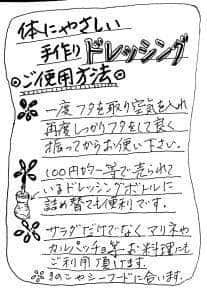 体にやさしい
手作りドレッシング
ご使用方法
一度フタを取り空気を入れ
再度しっかりフタをして良く
振ってからお使い下さい。
100円均一等で売られて
いるドレッシングボトルに
詰め替ても便利です。
サラダだけでなくマリネや
カルパッチョ等お料理にも
ご利用頂けます。
※きのこやシーフードに合います。